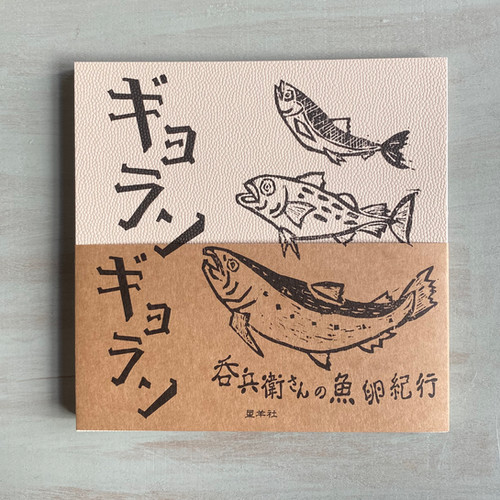 ギョラン
ギョラン
呑兵衛さんの魚卵紀行
星羊社